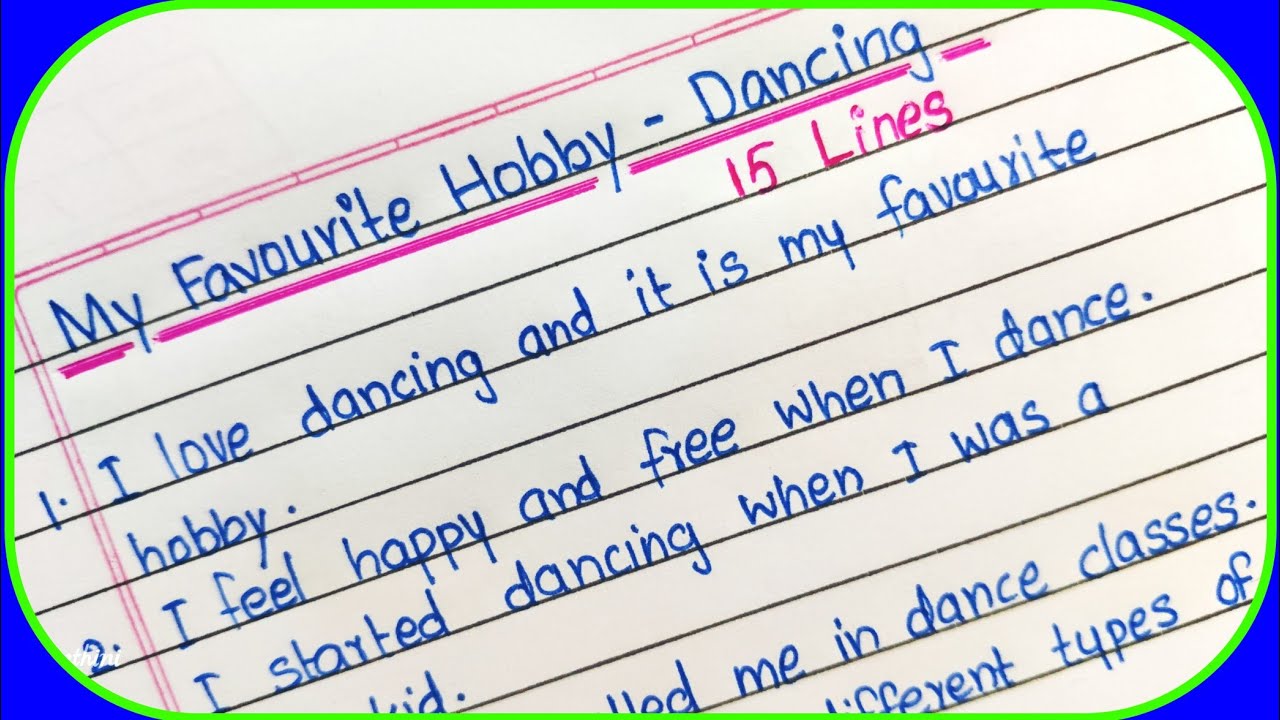 My Favourite Hobby - Dancing
15 Lines
1. I love dancing and it is my favourite
hobby.
2. I feel happy and free when I dance.
I started dancing when I was a
kid.
me in dance classes.
different types of